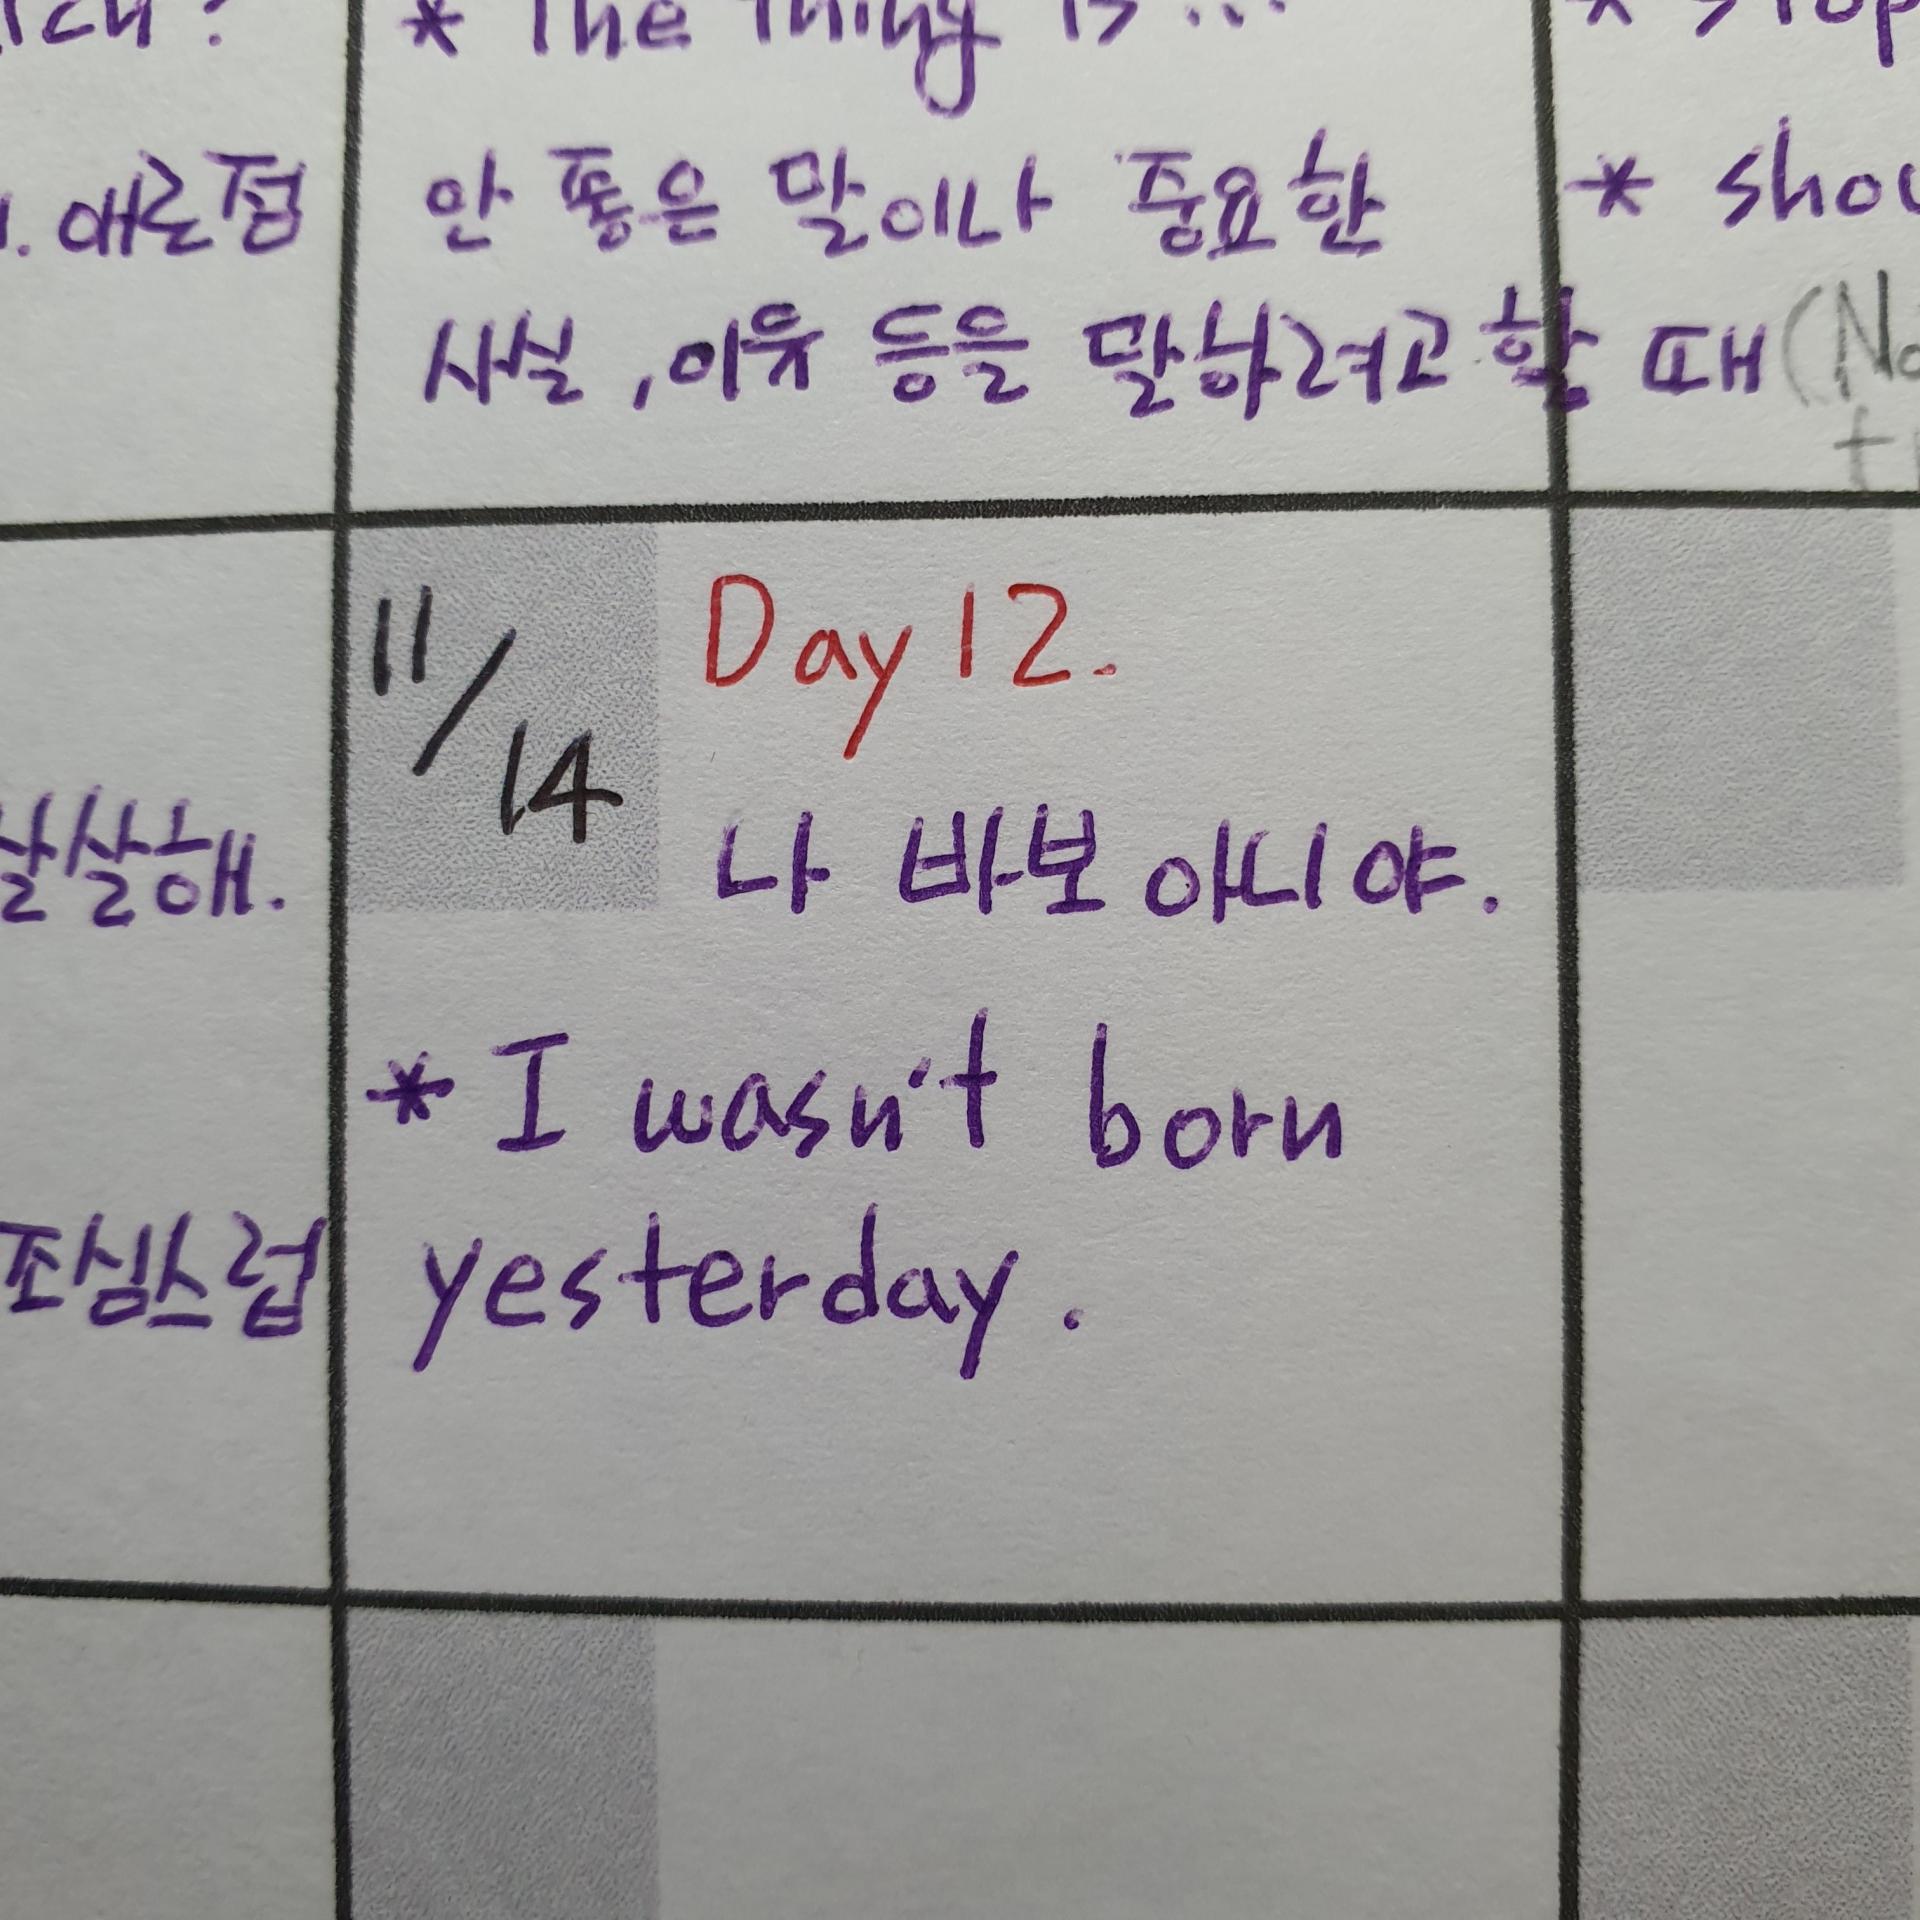 * The thing is ...
애로점
안 좋은 말이나 중요한
* shou
사실, 이유 등을 말하려고 할 때
11/14 Day 12.
나 바보 아니야.
살살해.
* I wasn't born
조심스럽
yesterday.